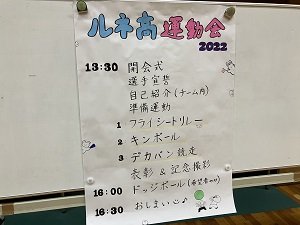 ルネ高運動会
2022
13:30 開会式
選手宣誓
自己紹介(チーム内)
準備運動
1 フライシートリレー
2 キンボール
3 デカパン競走
表彰 & 記念撮影
16:00 ドッジボール(希望者のみ)
16:30 おしまい♪